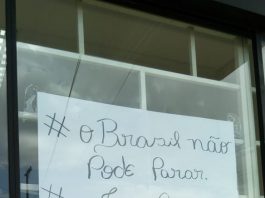 # O Brasil não
Pode Parar.
#